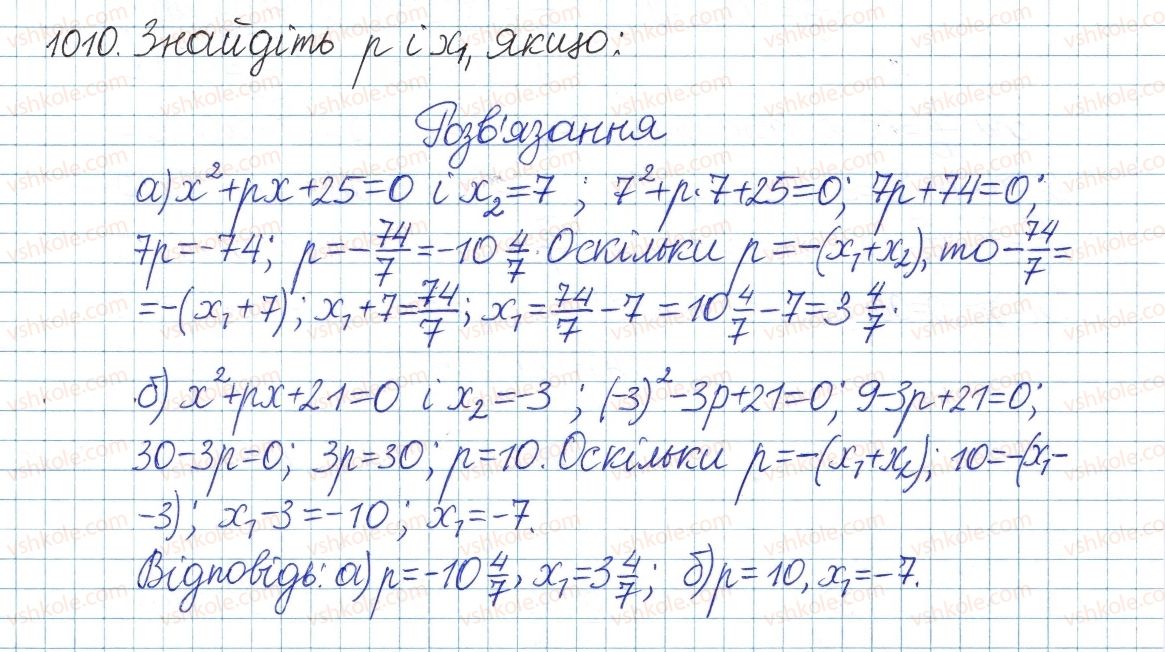 1010. Знайдіть p і x₁, якщо:
Розв'язання
а) x²+px+25=0 і x₂=7 ; 7²+p·7+25=0; 7p+74=0;
7p=-74; p=-74/7=-10 4/7. Оскільки p=-(x₁+x₂), то -74/7=
=-(x₁+7); x₁+7=74/7; x₁=74/7-7=10 4/7-7=3 4/7.
б) x²+px+21=0 і x₂=-3 ; (-3)²-3p+21=0; 9-3p+21=0;
30-3p=0; 3p=30; p=10. Оскільки p=-(x₁+x₂); 10=-(x₁-
-3); x₁-3=-10; x₁=-7.
Відповідь: а) p=-10 4/7, x₁=3 4/7; б) p=10, x₁=-7.